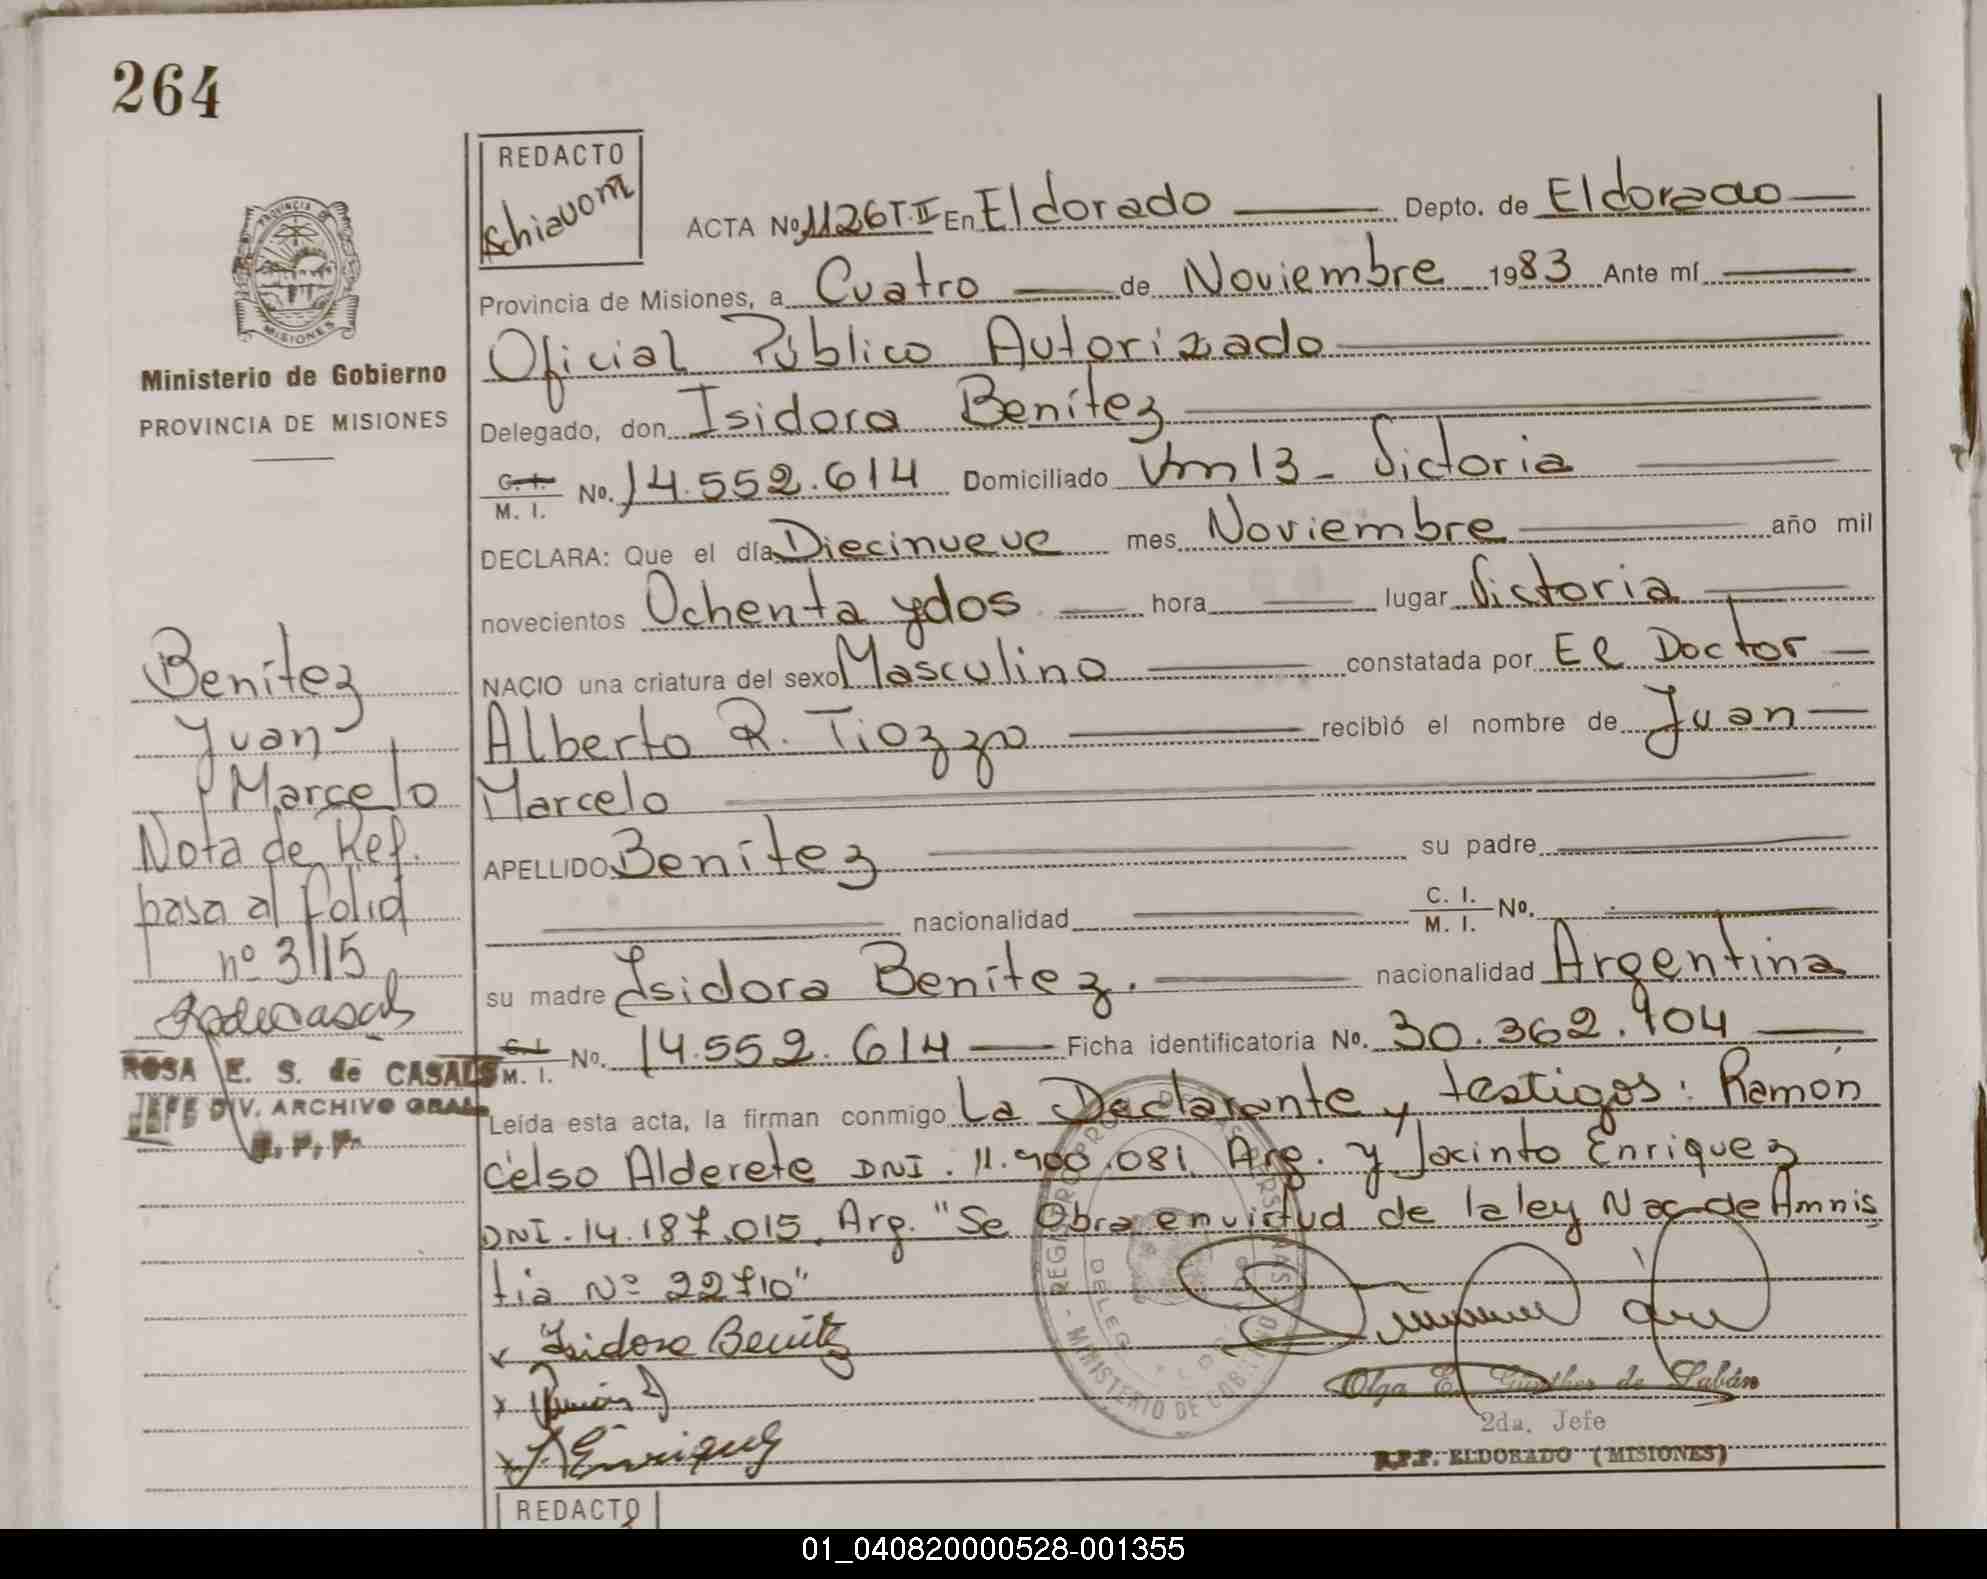 264
REDACTO
Schiavoni
ACTA No. 1126 T.II En Eldorado Depto. de Eldorado
Provincia de Misiones, a Cuatro de Noviembre 1983 Ante mí
Oficial Público Autorizado
Delegado, don Isidora Benítez
C. I. M. I. No. 14.552.614 Domiciliado Km 13 - Victoria
DECLARA: Que el día Diecinueve mes Noviembre año mil
novecientos Ochenta y dos hora lugar Victoria
NACIO una criatura del sexo Masculino constatada por El Doctor
Alberto R. Tiozzo recibió el nombre de Juan
Marcelo
APELLIDO Benítez su padre
nacionalidad C. I. M. I. No.
su madre Isidora Benítez. nacionalidad Argentina
C. I. M. I. No. 14.552.614 Ficha identificatoria No. 30.362.904
Leída esta acta, la firman conmigo La Declarante y testigos: Ramón
Celso Alderete DNI. 11.900.081 Arg. y Jacinto Enriquez
DNI. 14.187.015, Arg. "Se Obra en virtud de la ley Nac de Amnis
tia Nº 22710"
Isidora Benítez
Ramón
J Enriquez
Olga E. Günther de Fabián
2da. Jefe
R.P.P. ELDORADO (MISIONES)
REDACTO
PROVINCIA DE
MISIONES
Ministerio de Gobierno
PROVINCIA DE MISIONES
Benítez
Juan
Marcelo
Nota de Ref.
pasa al folio
nº 3115
ROSA E. S. de CASALS
JEFE DIV. ARCHIVO GRAL.
R. P. P.
MINISTERIO DE GOBIERNO
01_040820000528-001355